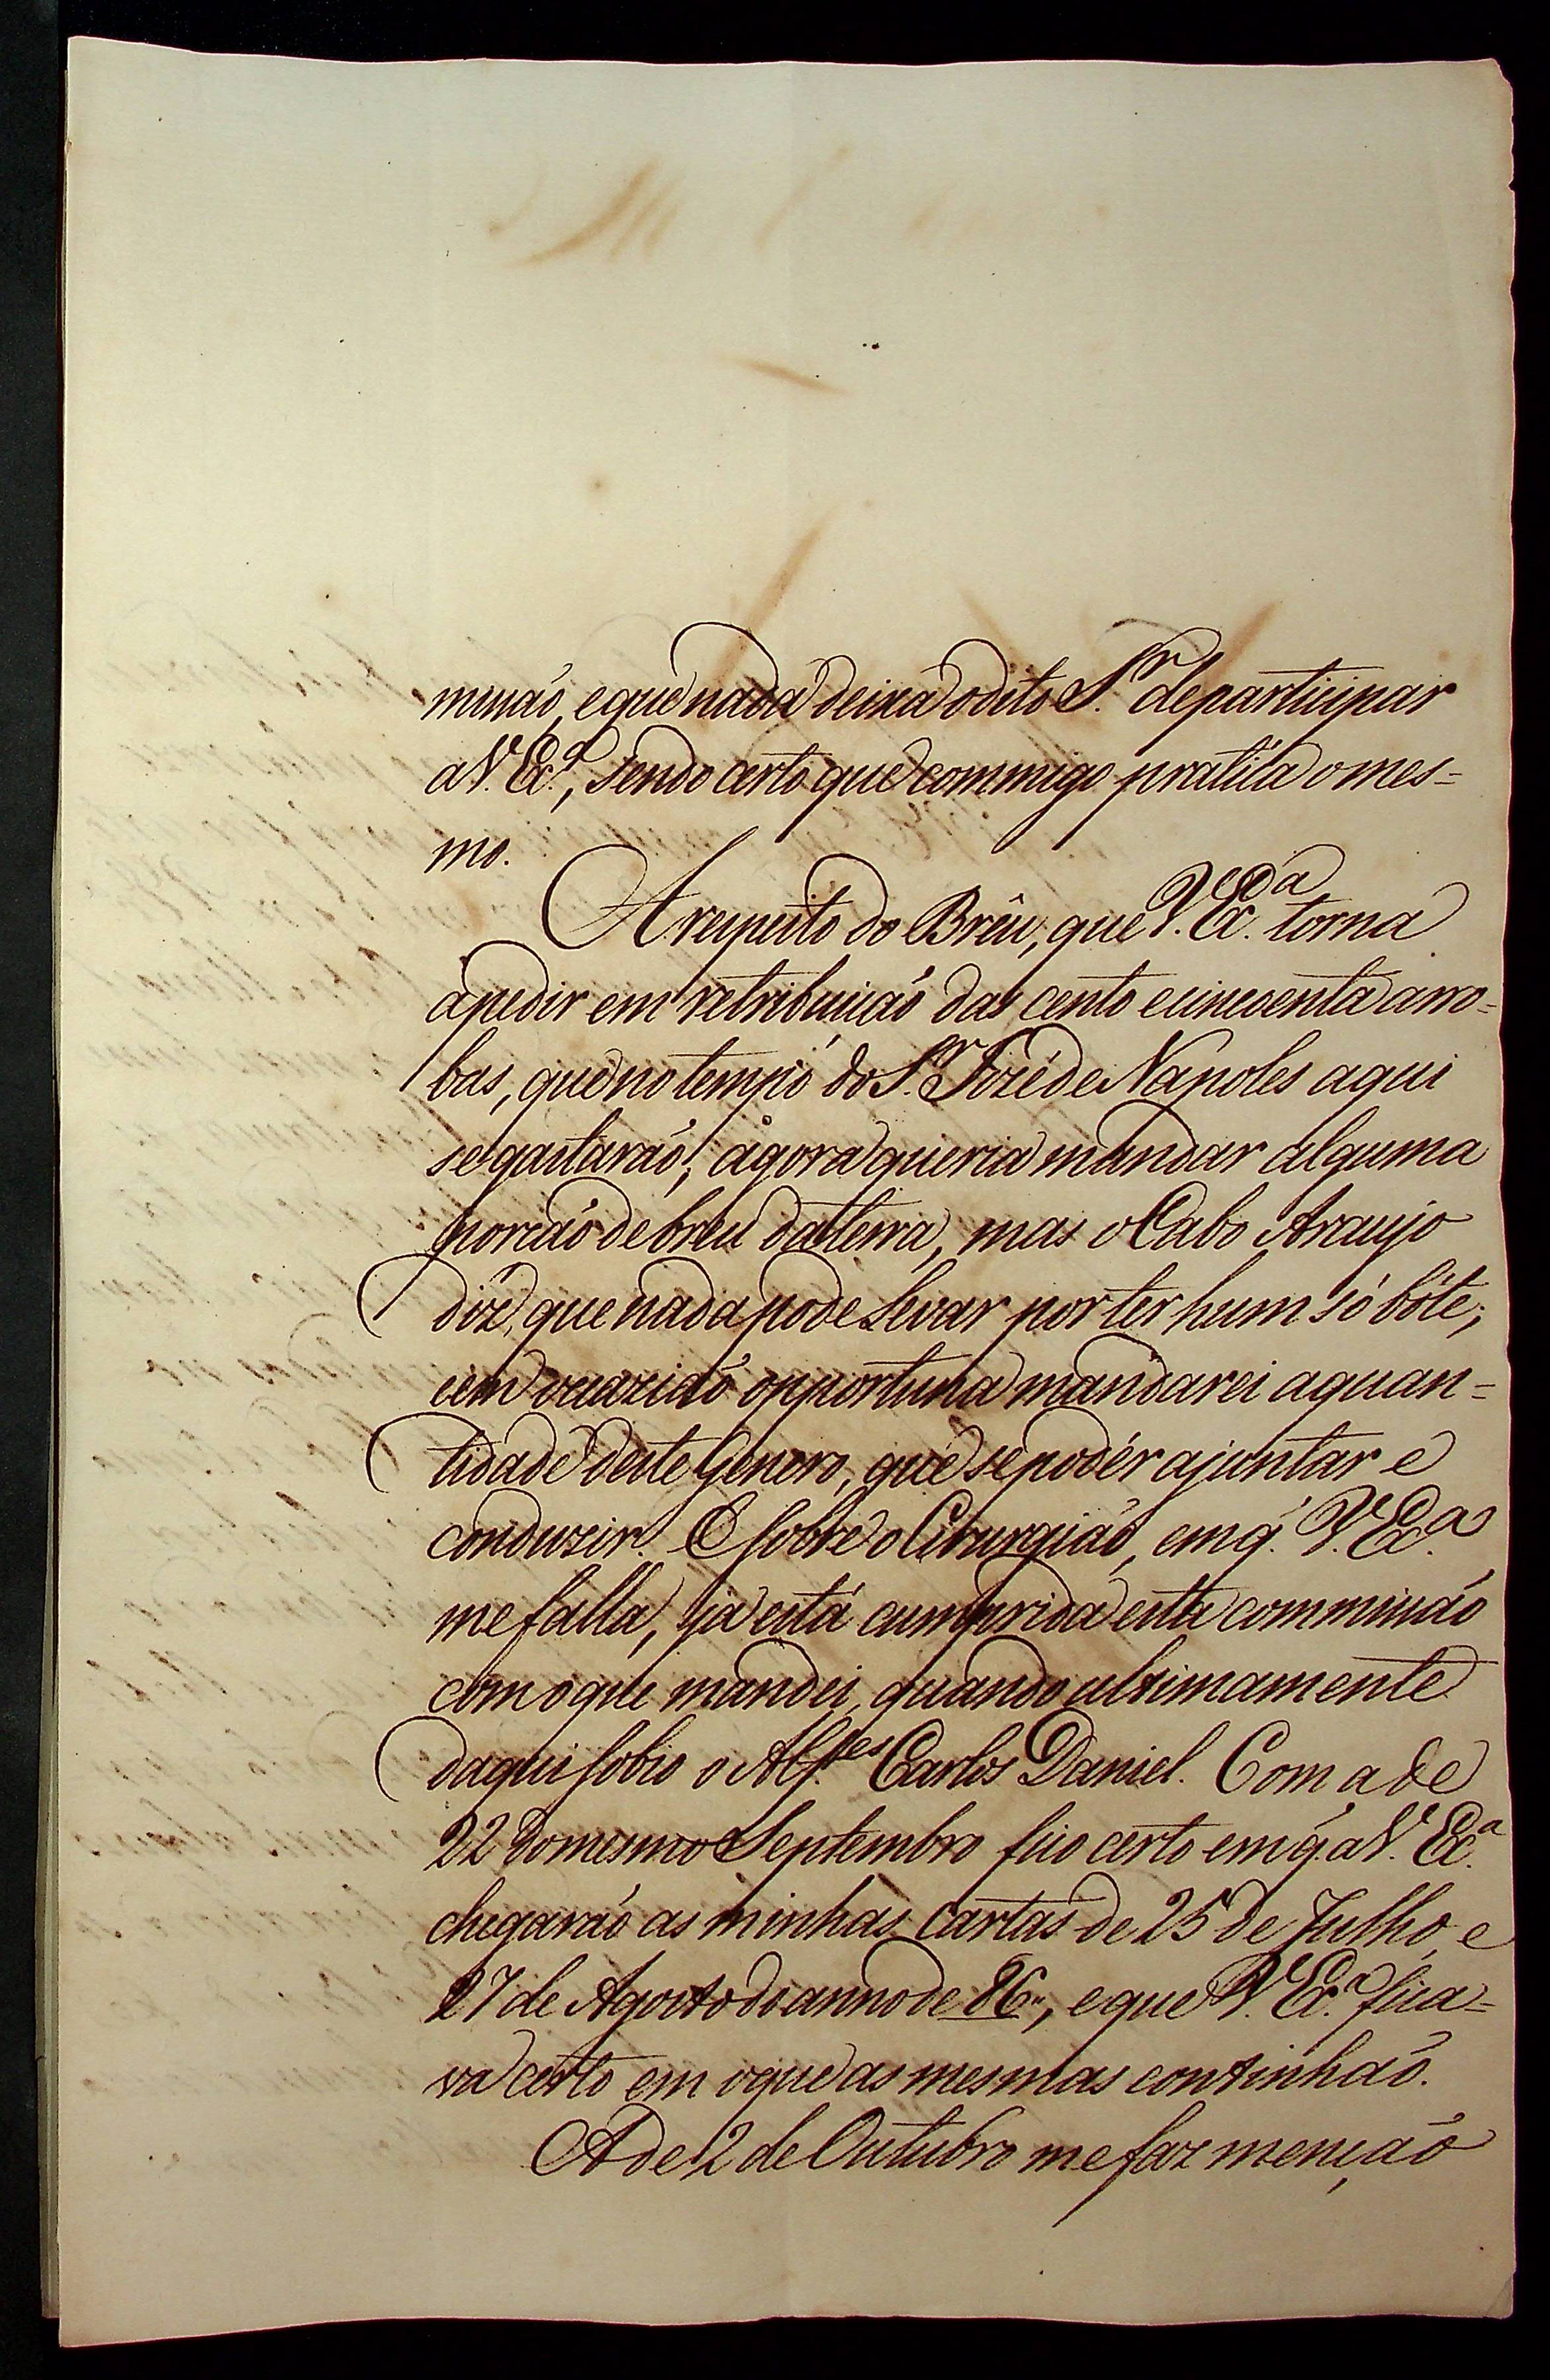 missaõ, e que nada deixa o dito S.r de participar
a V. Ex.ª, sendo certo que commigo pratica o mes-
mo.
A respeito do Brêu, que V. Ex.ª torna
a pedir em retribuiçaõ das cento e cincoenta arro-
bas, que no tempo do S.r Jozé de Napoles aqui
se gastaraõ, agora queria mandar alguma
porçaõ de breu da terra, mas o Cabo Araujo
diz, que nada pode levar por ter hum só bóte;
e em occaziaõ opportuna mandarei a quan-
tidade deste genero, que se podér ajuntar e
conduzir. E sobre o Cirurgiaõ, em q. V. Ex.ª
me falla, já está cumprida esta commissaõ
com o que mandei, quando ultimamente
daqui sobio o Alf.es Carlos Daniel. Com a de
22 do mesmo Septembro fico certo em q. a V. Ex.ª
chegaraõ as minhas cartas de 25 de Julho, e
27 de Agosto do anno de 86, e que V. Ex.ª fica-
va certo em o que as mesmas continhaõ.
A de 2 de Outubro me faz mençaõ